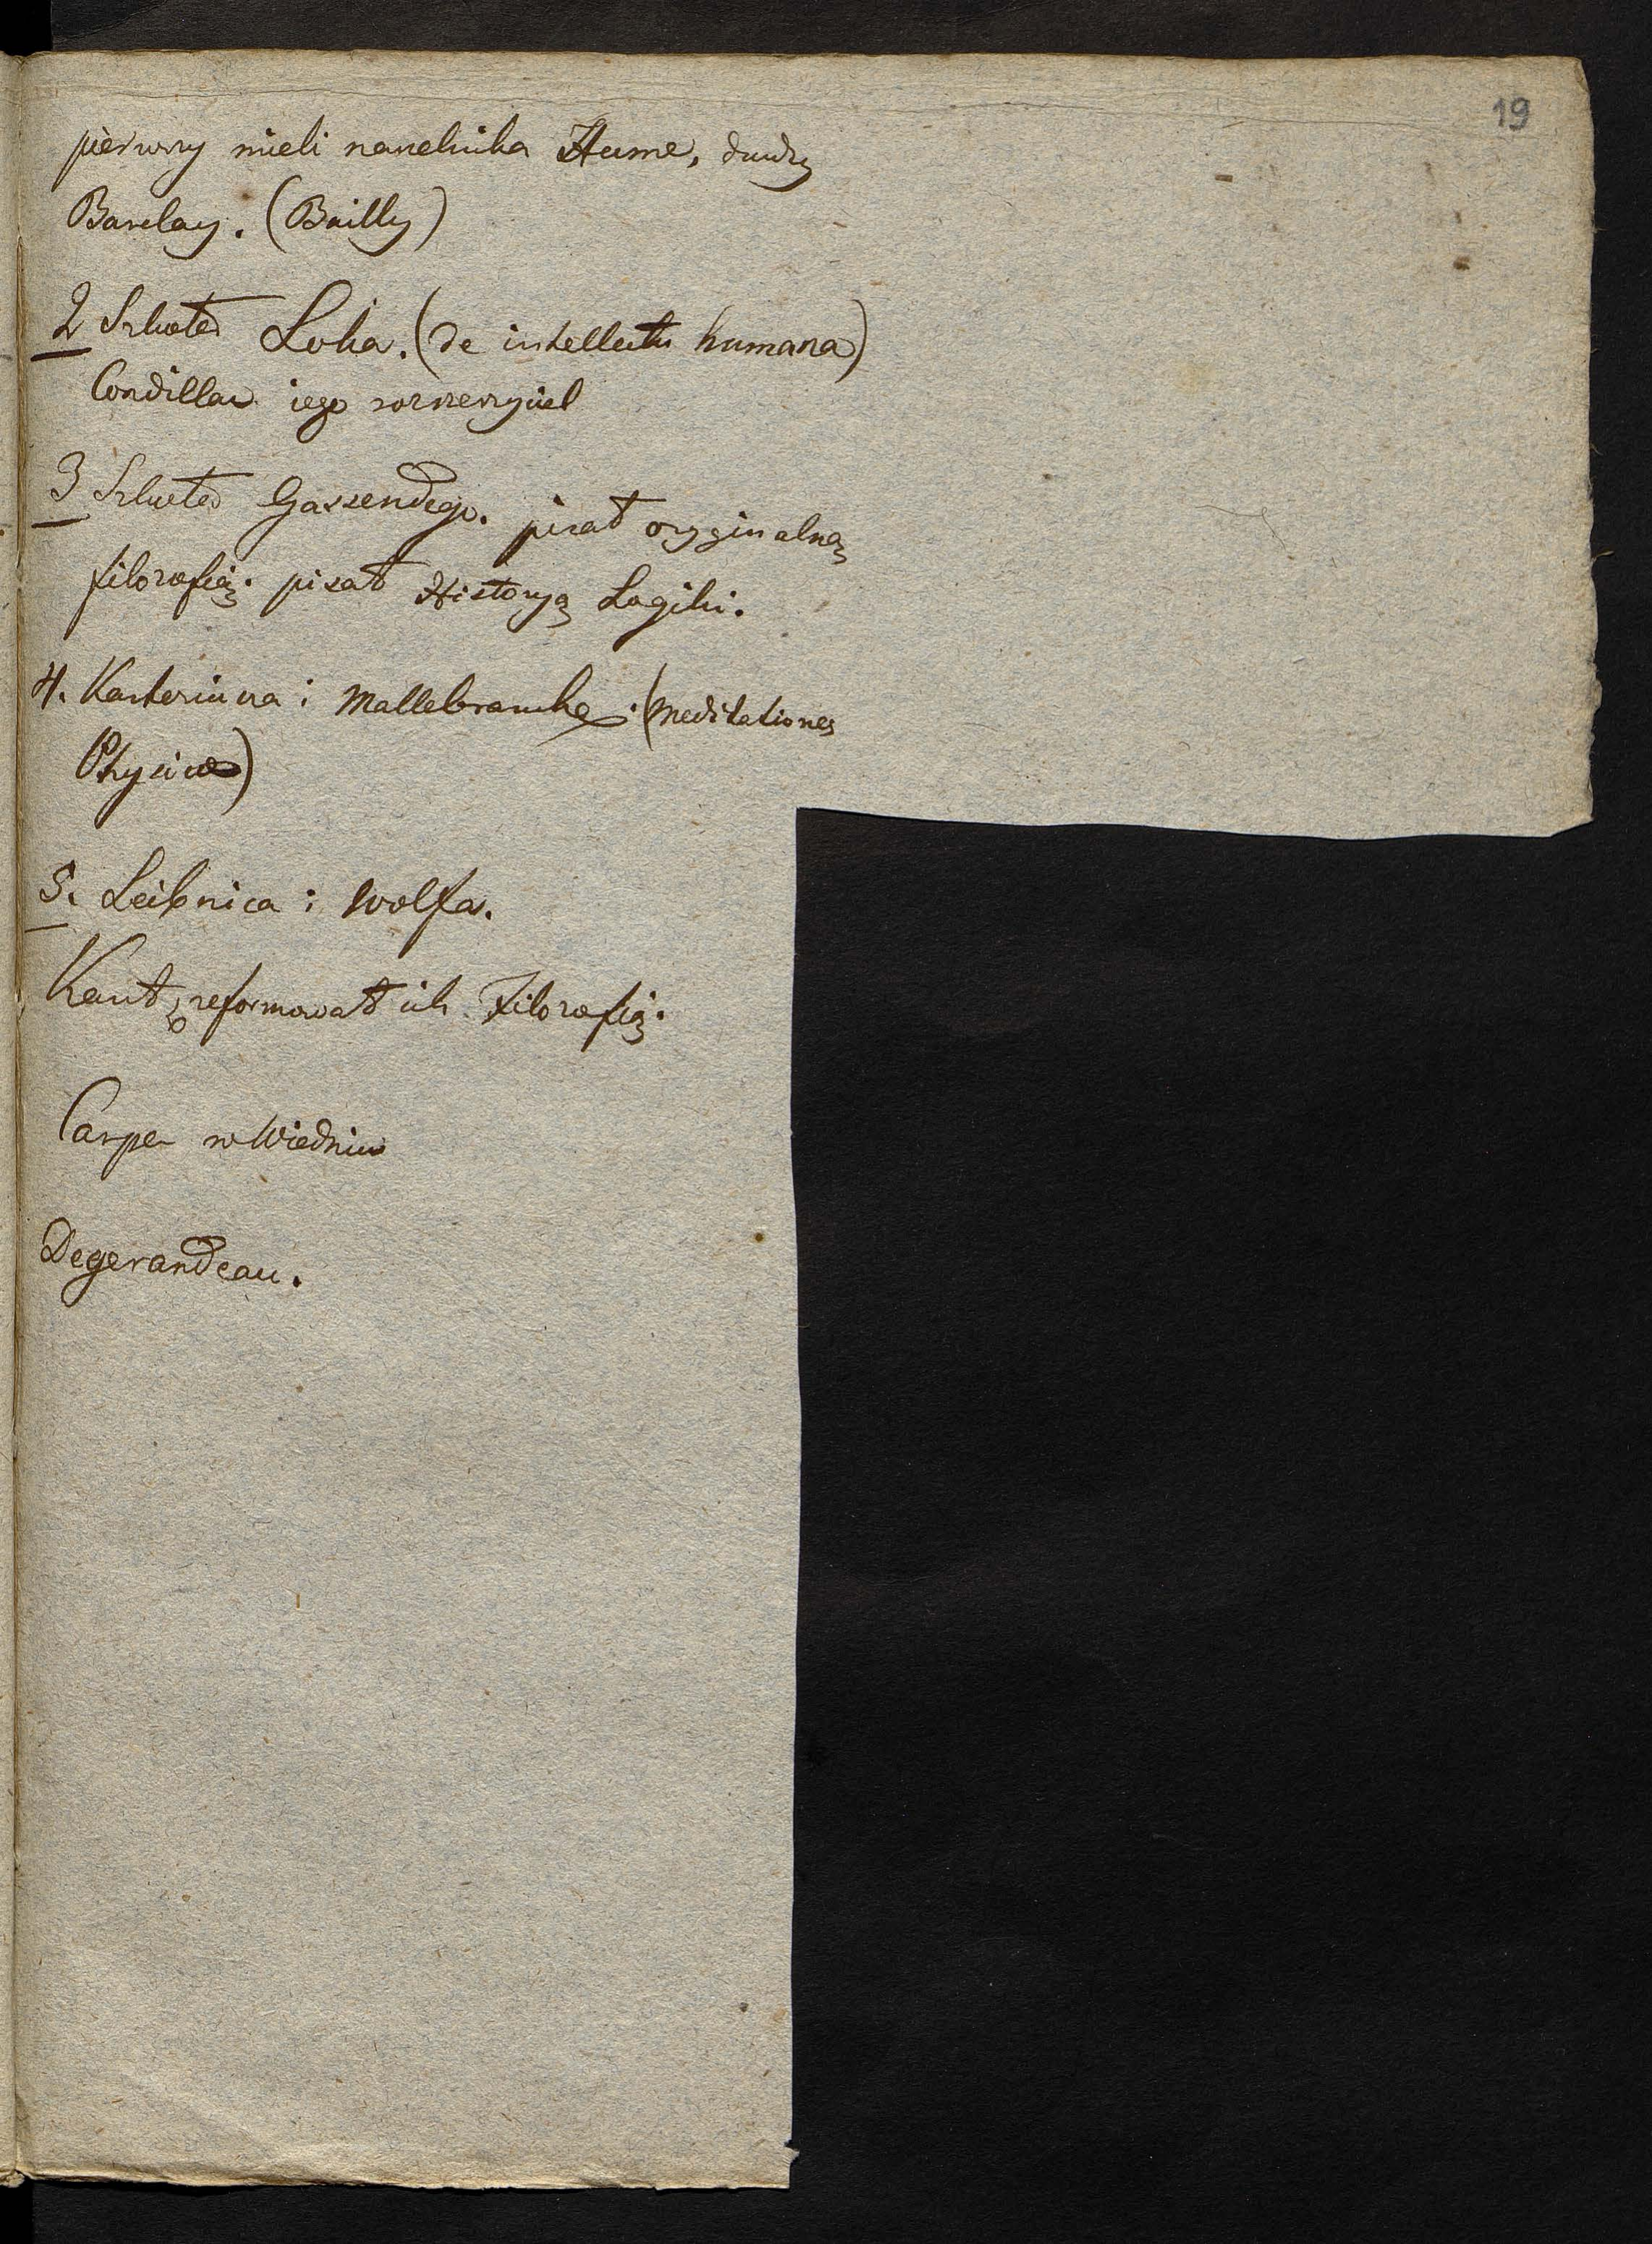 19
pierwszy mieli naczelnika Hume, drudzy
Barclay. (Bailly)
2 Szkoła Loka. (de intellectu humana)
Condillac iego rozszerzyciel
3 Szkoła Gassendego. pisał oryginalną
filozofią. pisał Historyą Logiki.
4. Karteziusza i Mallebranche. (Meditationes
Physicae)
5. Leibnica i Wolfa.
Kant zreformował ich Filozofią.
Carpe w Wiedniu
Degerandeau.